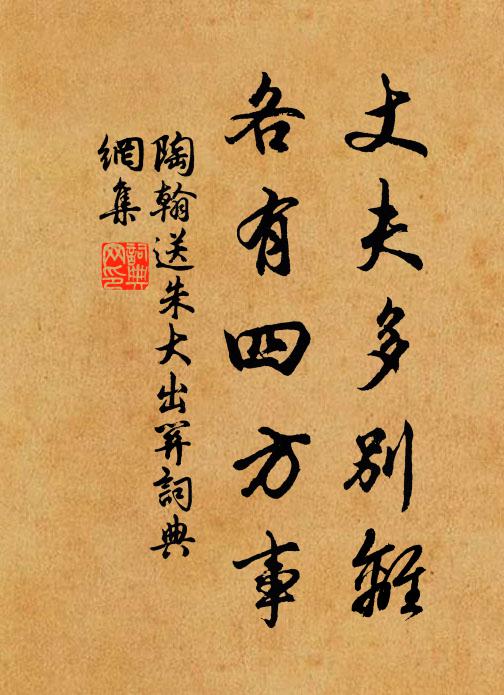 丈夫多別離
各有四方事
陶翰送朱大出關詞典
網集
詞典網印